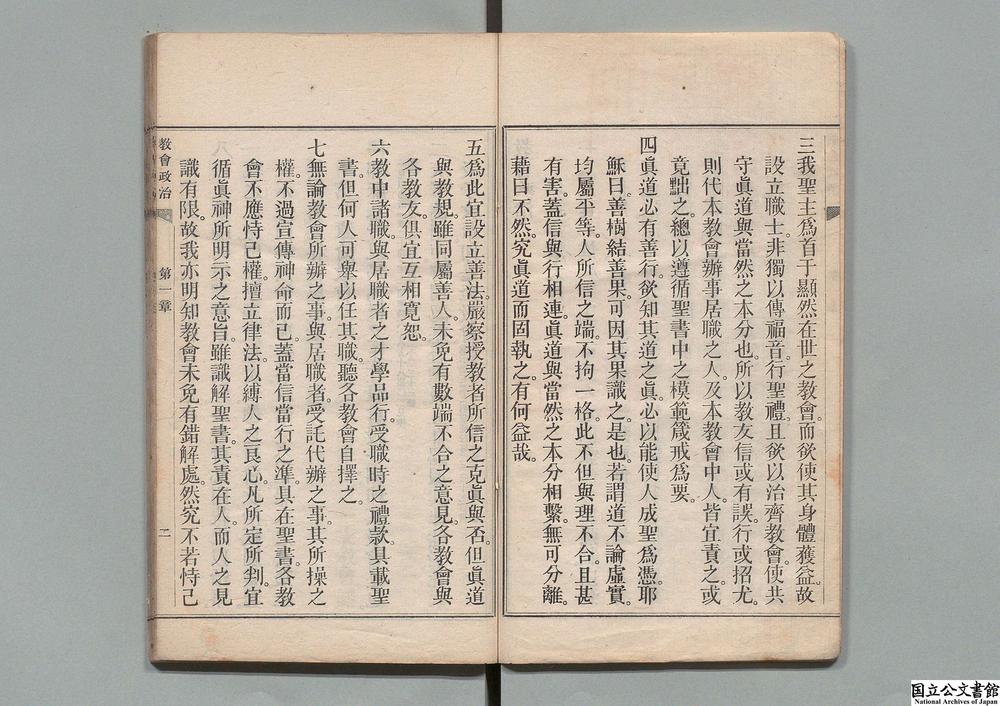 三我聖主爲首于顯然在世之敎會。而欲使其身體獲益。故
設立職士。非獨以傳福音。行聖禮。且欲以治齊敎會。使共
守眞道與當然之本分也。所以敎友信或有誤。行或招尤。
則代本敎會辦事居職之人。及本敎會中人。皆宜責之。或
竟黜之。總以遵循聖書中之模範箴戒爲要。
四眞道必有善行。欲知其道之眞。必以能使人成聖爲憑。耶
穌曰。善樹結善果。可因其果識之。是也。若謂道不論虛實。
均屬平等。人所信之端。不拘一格。此不但與理不合。且甚
有害。蓋信與行相連。眞道與當然之本分相繫。無可分離。
藉曰不然。究眞道而固執之。有何益哉。
五爲此宜設立善法。嚴察授敎者所信之克眞與否。但眞道
與敎規。雖同屬善人。未免有數端不合之意見。各敎會與
各敎友。俱宜互相寬恕。
六敎中諸職。與居職者之才學品行。受職時之禮款。具載聖
書。但何人可舉以任其職。聽各敎會自擇之。
七無論敎會所辦之事。與居職者。受託代辦之事。其所操之
權。不過宣傳神命而已。蓋當信當行之準。具在聖書。各敎
會不應恃己權。擅立律法。以縛人之良心。凡所定所判。宜
循眞神所明示之意旨。雖識解聖書。其責在人。而人之見
識有限。故我亦明知敎會未免有錯解處。然究不若恃己
敎會政治
第一章
二
国立公文書館
National Archives of Japan